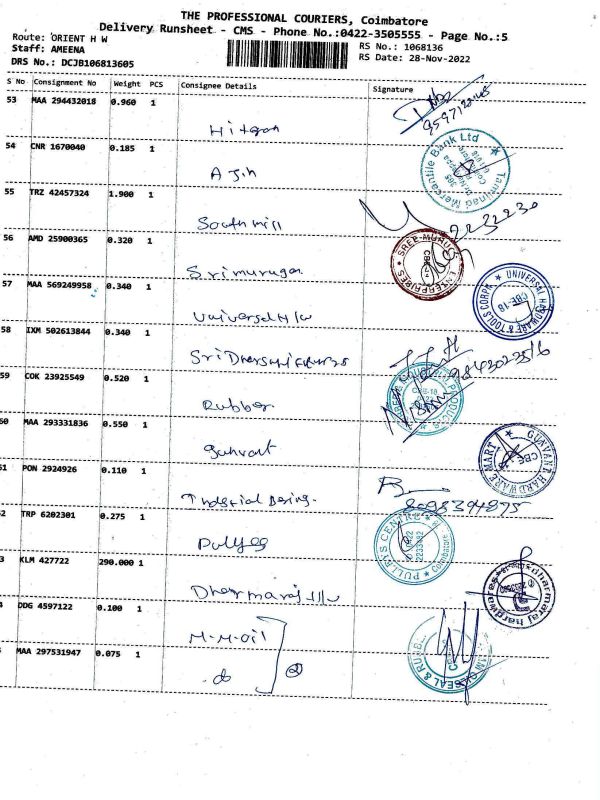 THE PROFESSIONAL COURIERS, Coimbatore
Delivery Runsheet - CMS - Phone No.:0422-3505555 - Page No.:5
Route: ORIENT H W
RS No.: 1068136
Staff: AMEENA
RS Date: 28-Nov-2022
DRS No.: DCJB106813605
S No Consignment No Weight PCS Consignee Details Signature
53 MAA 294432018 0.960 1
54 CNR 1670040 0.185 1
Ajih
TAMILNAD MERCANTILE BANK LTD
55 TRZ 42457324 1.900 1
South mill
2232230
56 AMD 25900365 0.320 1
Srimurugan
SREE MURUGAN ENTERPRISES
57 MAA 569249958 0.340 1
Universal H/W
UNIVERSAL HARDWARE & TOOLS CORPN CBE-18
58 IXM 502613844 0.340 1
9843023516
59 COK 23925549 0.520 1
Rubber
CBE-18
60 MAA 293331836 0.550 1
Gunvant
GUNVANT HARDWARE MART
61 PON 2924926 0.110 1
Industrial Bering.
8098394875
62 TRP 6202301 0.275 1
PULLEYS CENTRE Coimbatore
3 KLM 427722 290.000 1
Dharmaraj
dharmaraj hardwares
4 DDG 4597122 0.100 1
M-M-oil
MAA 297531947 0.075 1
do
②